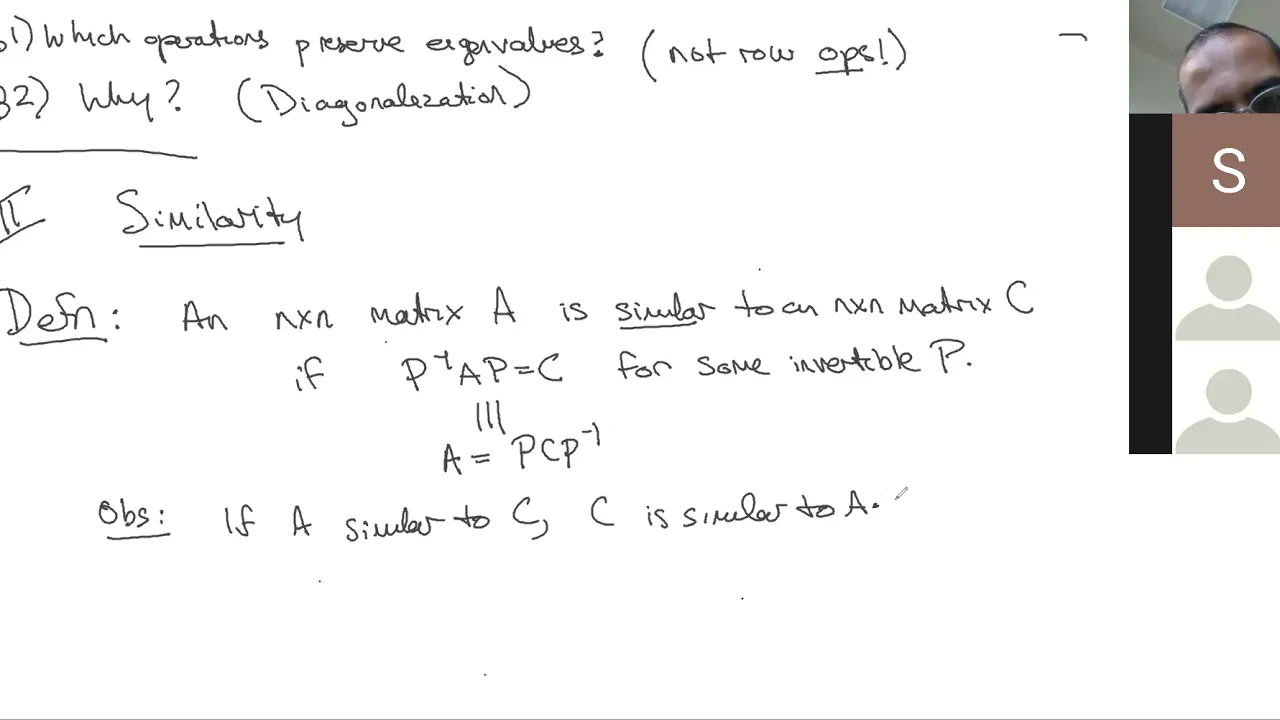 61) Which operations preserve eigenvalues? (not row ops!)
B2) Why? (Diagonalezation)
II Similarity
Defn: An nxn matrix A is similar to an nxn matrix C
if P⁻¹AP=C for some invertible P.
|||
A = PCP⁻¹
Obs: If A similar to C, C is similar to A.
S